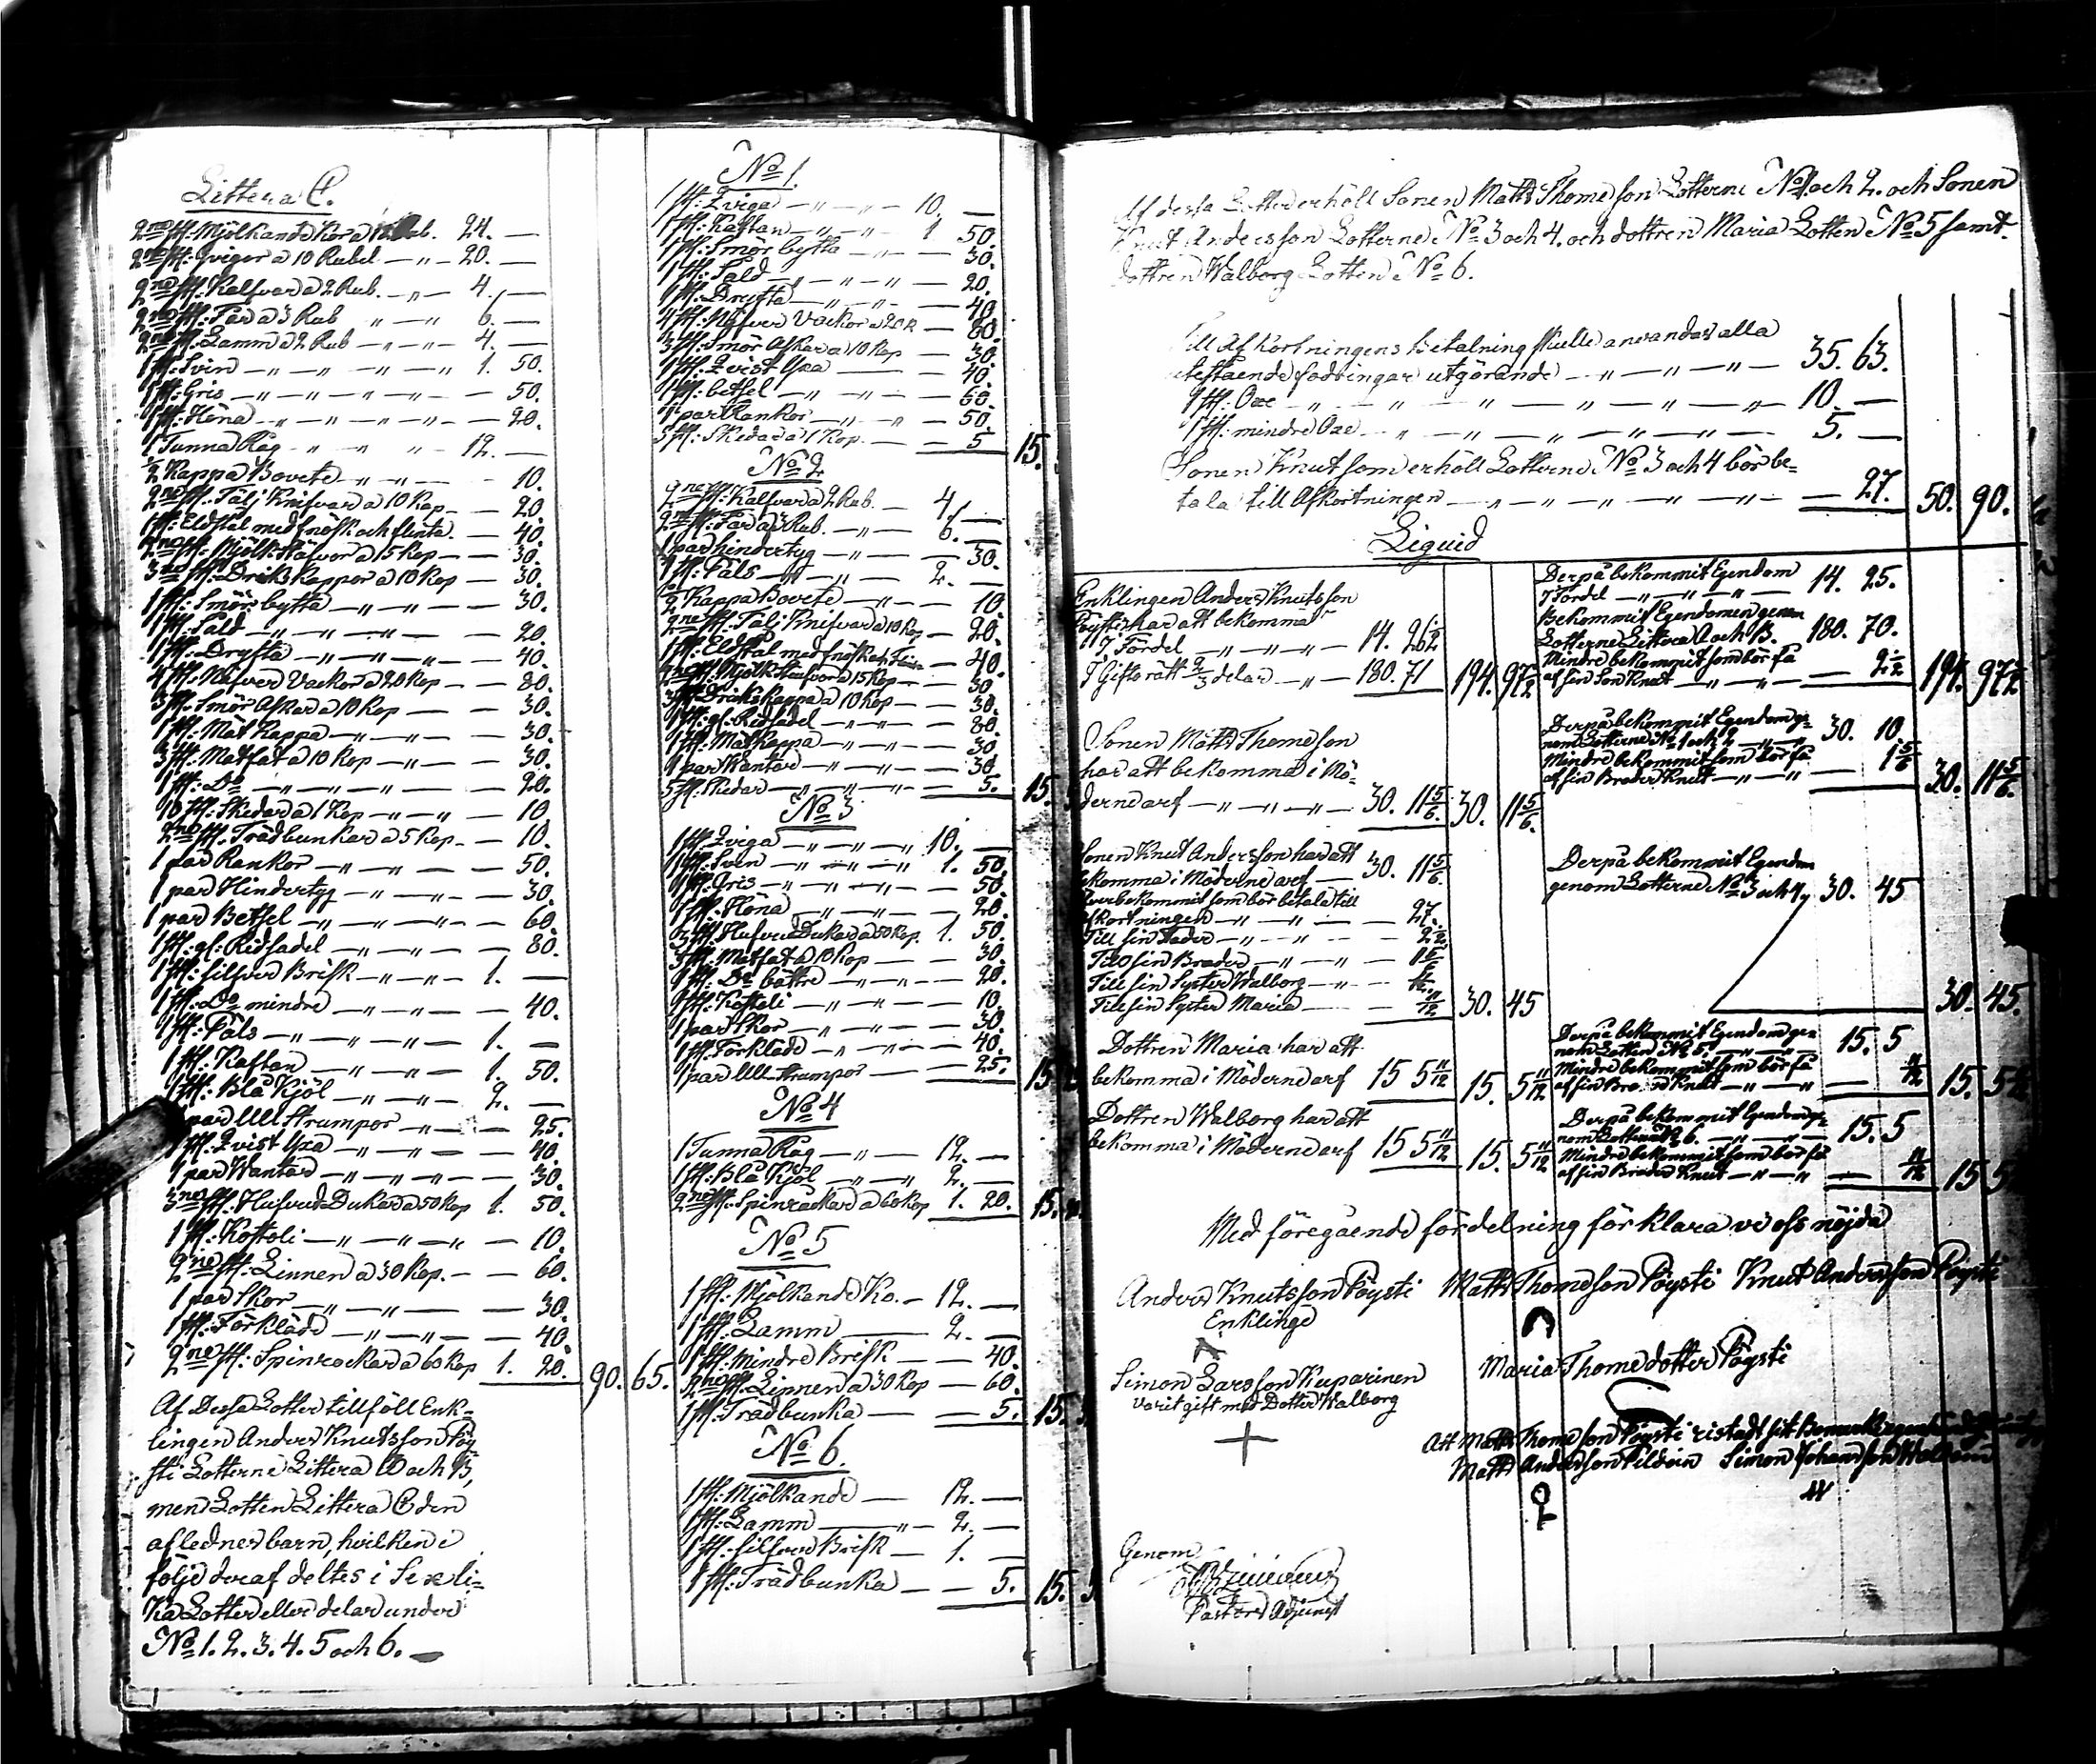 Littera C.
2ne st: Mjölkande Kor a 12 Rub. 24. —
2ne st: Qvigor a 10 Rubel — „ — 20. —
2ne st: Kalfvar a 2 Rub. — „ — 4. —
2ne st: Får a 3 Rub „ — „ 6. —
2ne st: Lamm a 2 Rub — „ — „ — 4. —
1 st: Svin — „ — „ — „ — „ 1. 50.
1 st: Gris — „ — „ — „ — „ — — 50.
1 st: Höna — „ — „ — „ — „ — — 20.
1 Tunna Råg — „ — „ „ — 12. —
1/2 Kappa Bovete — „ — „ — 10.
2ne st: Tälj Knifvar a 10 Kop — — 20.
1 st: Eldstål med fnösk och flinta. — 40.
2ne st: Mjölk Stäfvor a 15 Kop — — 30.
3ne st: Driks Kappor a 10 Kop — 30.
1 st: Smör bytta — „ — „ — — 30.
1 st: Såld — „ — „ — „ — — 20.
1 st: Dryfta — „ — „ — „ — — 40.
4 st: Näfver Vackor a 20 Kop — — 80.
3 st: Smör Askar a 10 Kop — — 30.
1 st: Mat Kappa — „ — „ — — 30.
3 st: Matfat a 10 Kop — „ — — 30.
1 st: Do — „ — „ — „ — — 20.
10 st: Skedar a 1 Kop — „ — „ — 10
2ne st: Trädbunkar a 5 Kop — — 10.
1 par Rankor — „ — „ — „ — — 50.
1 par Hindertyg — „ — „ — — 30.
1 par Betsel — „ — „ — „ — 60.
1 st: gl: Ridsadel — „ — „ — — 80.
1 st: silfver Brisk — „ — „ — 1. —
1 st: Do mindre — „ — „ — — 40.
1 st: Päls — „ — „ — „ — 1. —
1 st: Kaftan — „ — „ — 1. 50.
1 st: Blå Kjöl — „ — „ — 2. —
1 par Ull Strumpor — „ — — 25.
1 st: Qvist Yxa — „ — „ — — 40
1 par Wantar — „ — „ — „ — — 30.
3ne st: Hufvud Dukar a 50 Kop 1. 50.
1 st: Kosteli — „ — „ — „ — 10.
2ne st: Linnen a 30 Kop. — — 60.
1 par Skor — „ — „ — — 30.
1 st: Förkläde — „ — „ — — 40.
2ne st: Spinrockar a 60 Kop 1. 20. 90. 65.
Af Dessa Lotter tillföll Enk-
lingen Anders Knutsson Pöy-
sti Lotterne Littera A och B,
men Lotten Littera C den
aflednes barn, hvilken i
följe deraf deltes i Sex li-
ka Lotter eller delar under
No 1. 2. 3. 4. 5 och 6. —
No 1.
1 st: Qviga — „ — „ — 10. —
1 st: Kaftan — „ — „ — 1 50.
1 st: Smör bytta — „ — — 30.
1 st: Såld — „ — „ — „ — 20.
1 st: Dryfta — „ — „ — — 40
4 st: Näfver Vackor a 20 K — 80.
3 st: Smör Askar a 10 Kop — 30.
1 st: Qvist Yxa — — 40.
1 st: betsel — „ — „ — — 60.
1 par Rankor — „ — „ — 50.
5 st: Skedar a 1 Kop — — 5 15.
No 2
2ne st: Kalfvar a 2 Rub. — 4. —
2ne st: Får a 3 Rub. — „ — 6. —
1 par hindertyg — „ — — 30.
1 st: Päls — „ — „ — 2. —
1/2 Kappa Bovete — „ — — 10.
2ne st: Tälj Knifvar a 10 Kop — 20.
1 st: Eldstål med fnösk och Flinta — 40.
2ne st: Mjölk Stäfvor a 15 Kop — — 30
3 st: Driks Kappa a 10 Kop — — 30.
1 st: gl: Ridsadel — „ — „ — 80.
1 st: Mat Kappa — „ — „ — 30
1 par Wantar — „ — „ — 30.
5 st: Skedar — „ — „ — — 5. 15.
No 3
1 st: Qviga — „ — „ — „ 10. —
1 st: Svin — „ — „ — „ 1. 50.
1 st: Gris — „ — „ — „ — — 50.
1 st: Höna — „ — „ — — 20.
3 st: Hufvud Dukar a 50 Kop. 1. 50.
3 st: Matfat a 10 Kop — — 30.
1 st: Do bättre — „ — „ — — 20.
1 st: Kosteli — „ — „ — — 10.
1 par Skor — „ — „ — — 30.
1 st: Förkläde — „ — „ — — 40.
1 par Ull Strumpor — — 25. 15.
No 4
1 Tunna Råg — „ — 12. —
1 st: Blå Kjöl — „ — „ 2. —
2ne st: Spinrockar a 60 Kop 1. 20. 15.
No 5
1 st: Mjölkande Ko. — 12. —
1 st: Lamm — 2. —
1 st: Mindre Brisk — — 40.
2ne st: Linnen a 30 Kop — 60.
1 st: Trädbunka — — 5. 15.
No 6.
1 st: Mjölkande — 12. —
1 st: Lamm — „ — 2. —
1 st: silfver Brisk — 1. —
1 st: Trädbunka — — 5. 15.
Af dessa Lotter erhölt Sonen Matts Thomesson Lotterne No 1 och 2. och Sonen
Knut Andersson Lotterne No 3 och 4. och dottren Maria Lotten No 5 samt
dottren Walborg Lotten No 6.
Till Afkortningens betalning skulle användas alla
utestående fodringar utgörande — „ — „ — „ — 35. 63.
1 st: Oxe — „ — „ — „ — „ — „ — 10. —
1 st: mindre Oxe — „ — „ — „ — „ — 5. —
Sonen Knut som erhölt Lotterne No 3 och 4 bör be-
tala till Afkortningen — „ — „ — „ — „ — — 27. 50. 90.
Liquid
Enklingen Anders Knutsson
Pöysti har att bekomma
i Fördel — „ — „ — 14. 26 1/2
I Giftorätt 2/3 delar — „ — 180. 71 194. 97 1/2
Derpå bekommit Egendom
i Fördel — „ — „ — „ — 14. 25.
Bekommit Egendomen genom
Lotterne Littera A och B. 180. 70.
Mindre bekommit som bör få
af sin Son Knut — „ — „ — — 2 1/2 194. 97 1/2
Sonen Matts Thomesson
har att bekomma i Mö-
dernearf — „ — „ — „ — 30. 11 5/6. 30. 11 5/6.
Derpå bekommit Egendom ge-
nom Lotterne No 1 och 2 — „ — 30. 10.
Mindre bekommit som bör få
af sin Broder Knut — „ — „ — 1 5/6 30. 11 5/6.
Sonen Knut Andersson har att
bekomma i Mödernearf — 30. 11 5/6.
Överbekommit som bör betala till
Afkortningen — „ — „ — — 27.
Till sin Fader — „ — „ — — 2 1/2.
Till sin Broder — „ — „ — 1 5/6
Till sin Syster Walborg — „ — 11/12
Till sin Syster Maria — — 11/12 30. 45
Derpå bekommit Egendom
genom Lotterne No 3 och 4, 30. 45
30. 45.
Dottren Maria har att
bekomma i Mödernearf 15 5 11/12 15. 5 11/12
Derpå bekommit Egendom gen-
nom Lotten No 5. — „ — „ — 15. 5
Mindre bekommit som bör få
af sin Broder Knut — „ — „ — 11/12 15. 5
Dottren Walborg har att
bekomma i Mödernearf 15 5 11/12 15. 5 11/12
Derpå bekommit Egendom ge-
nom Lotten No 6. — „ — „ — 15. 5
Mindre bekommit som bör få
af sin Broder Knut — „ — „ — 11/12 15 5
Med föregående fördelning förklara vi oss nöjda
Anders Knutsson Pöysti Matts Thomesson Pöysti Knut Andersson Pöysti
Enkling
Simon Larsson Kuparinen Maria Thomedotter Pöysti
varit gift med Dotter Walborg
Att Matts Thomesson Pöysti ristadt sitt Bomärke
Matts Andersson Simon Johansson
Genom
Pastors Adjunct